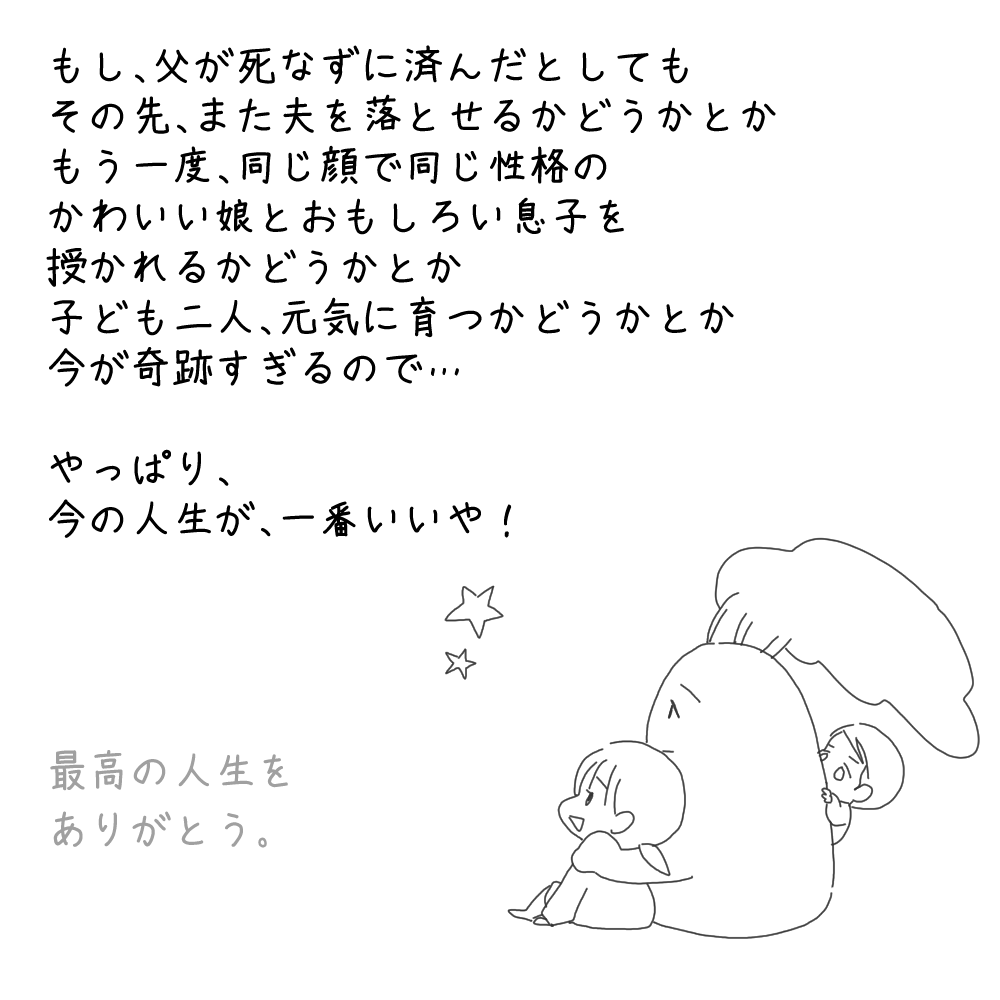 もし、父が死なずに済んだとしても
その先、また夫を落とせるかどうかとか
もう一度、同じ顔で同じ性格の
かわいい娘とおもしろい息子を
授かれるかどうかとか
子ども二人、元気に育つかどうかとか
今が奇跡すぎるので…
やっぱり、
今の人生が、一番いいや！
最高の人生を
ありがとう。